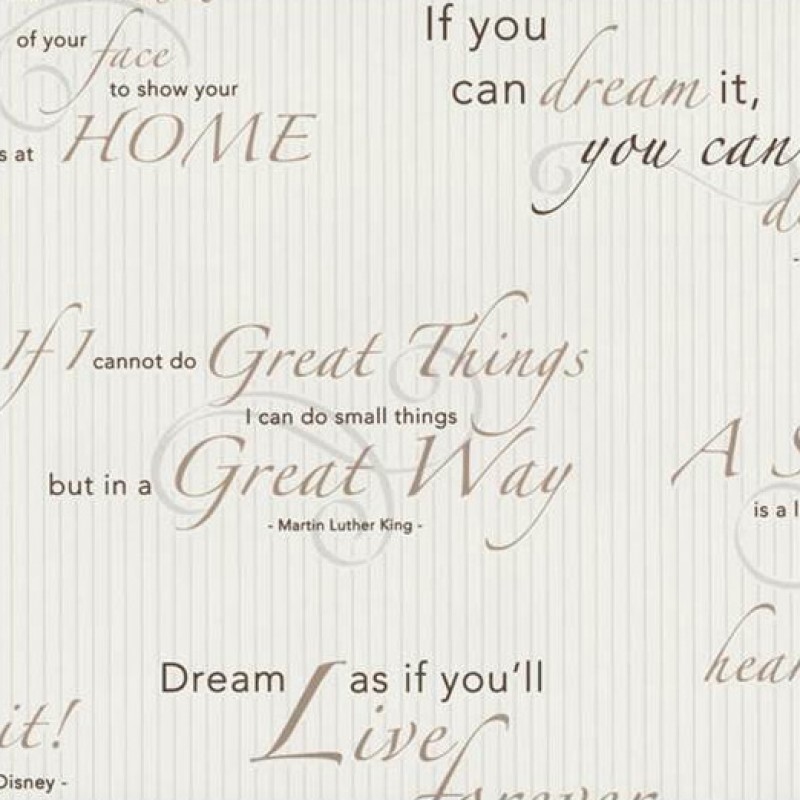 of your face
to show your
s at HOME
If you
can dream it,
you can
If I cannot do Great Things
I can do small things
but in a Great Way
- Martin Luther King -
A S
is a l
hear
Dream as if you'll
Live
forever
it!
Disney -